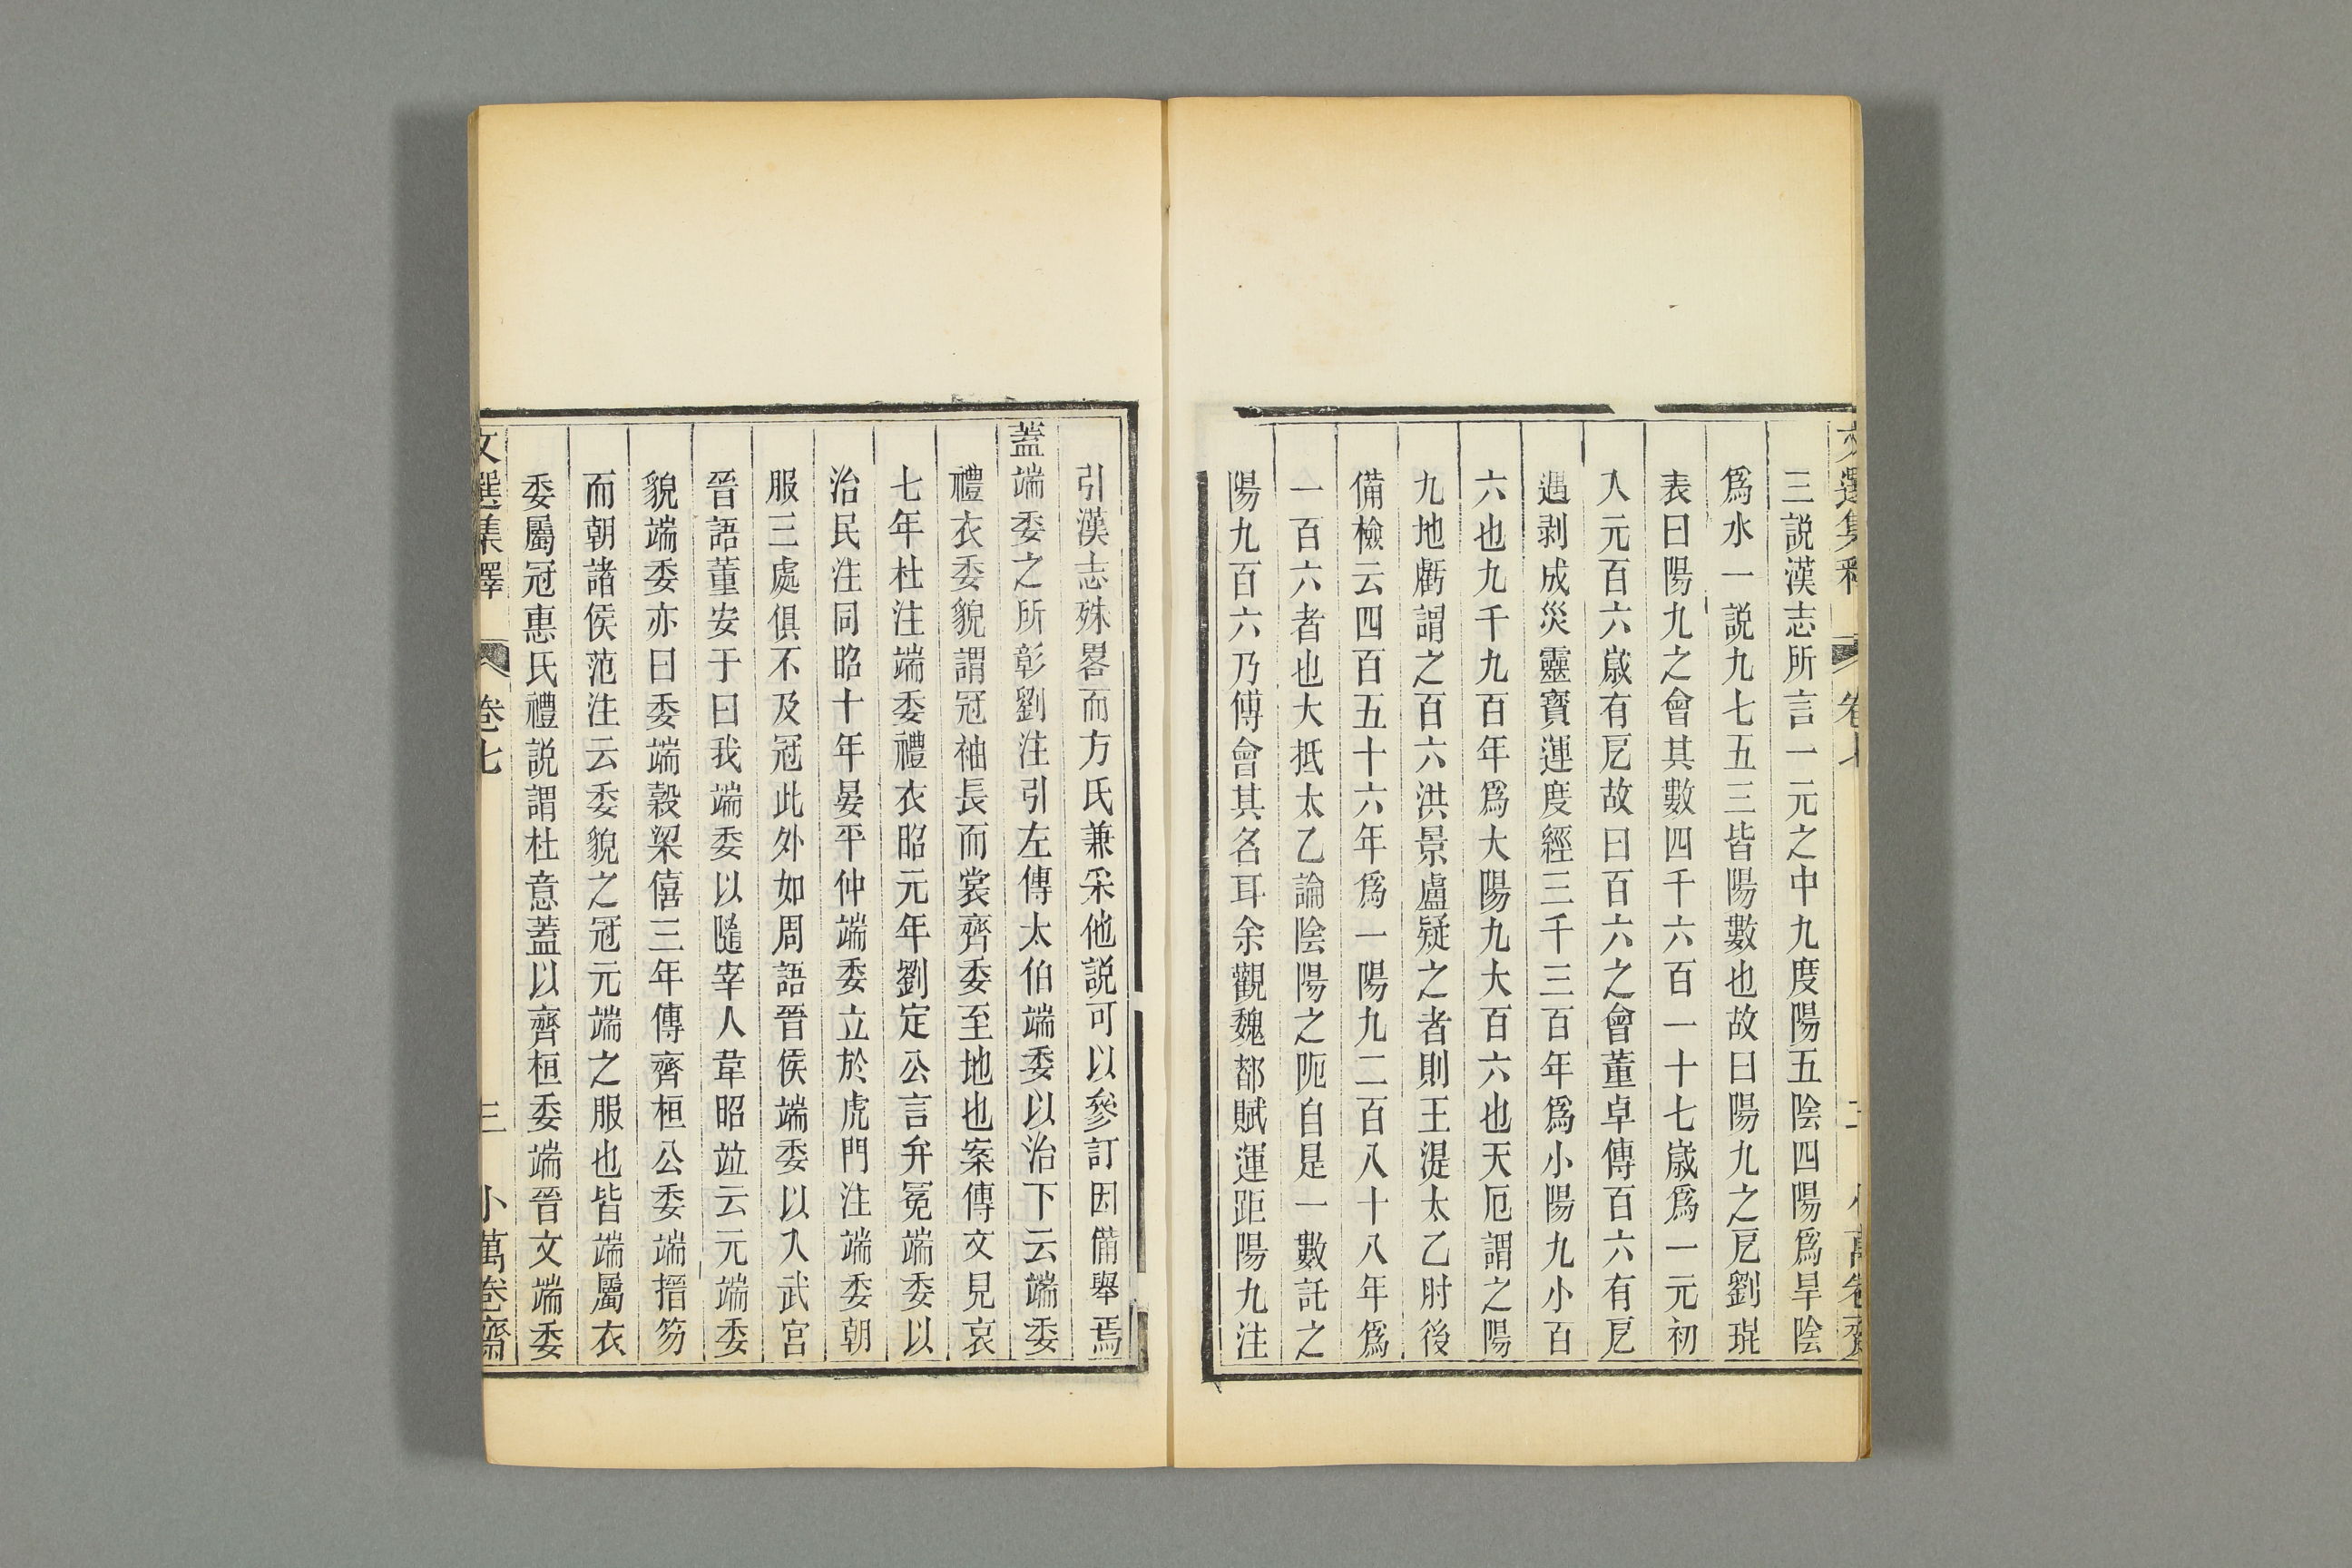 三説漢志所言一元之中九度陽五陰四陽爲旱陰
爲水一説九七五三皆陽數也故曰陽九之戹劉琨
表曰陽九之會其數四千六百一十七歲爲一元初
入元百六歲有戹故曰百六之會董卓傳百六有戹
遇剥成災靈寳運度經三千三百年爲小陽九小百
六也九千九百年爲大陽九大百六也天厄謂之陽
九地虧謂之百六洪景盧疑之者則王湜太乙肘後
備檢云四百五十六年爲一陽九二百八十八年爲
一百六者也大抵太乙論陰陽之阨自是一數託之
陽九百六乃傅會其名耳余觀魏都賦運距陽九注
引漢志殊畧而方氏兼采他説可以參訂因備舉焉
蓋端委之所彰劉注引左傳太伯端委以治下云端委
禮衣委貌謂冠袖長而裳齊委至地也案傳文見哀
七年杜注端委禮衣昭元年劉定公言弁冕端委以
治民注同昭十年晏平仲端委立於虎門注端委朝
服三處俱不及冠此外如周語晉侯端委以入武宮
晉語董安于曰我端委以隨宰人韋昭竝云元端委
貌端委亦曰委端穀梁僖三年傳齊桓公委端搢笏
而朝諸侯范注云委貌之冠元端之服也皆端屬衣
委屬冠惠氏禮説謂杜意蓋以齊桓委端晉文端委
文選集釋 卷七 三 小萬卷齋